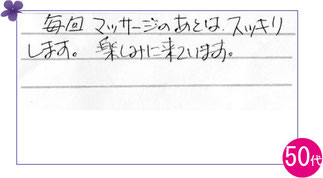 毎回 マッサージのあとは、スッキリ
します。 楽しみに来ています。
50代